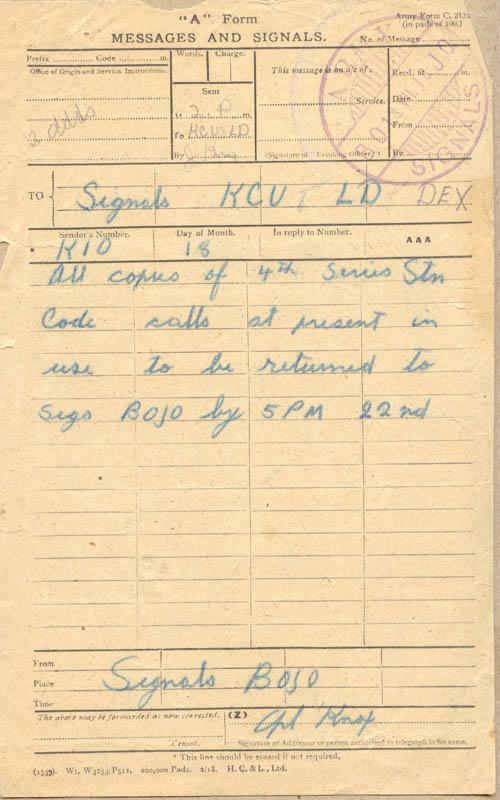 "A" Form
Army Form C. 2121
(in pads of 100.)
MESSAGES AND SIGNALS.
No. of Message
Prefix Code m.
Words. Charge.
This message is on a/c of:
Recd. at m.
Office of Origin and Service Instructions.
Sent
Service.
Date
At 2 P m.
3 adds
To KCU LD
From
By
(Signature of "Franking Officer")
By
SIGNALS
TO Signals KCU LD DEX
Sender's Number. Day of Month. In reply to Number. AAA
* K10 18
All copies of 4th Series Stn
Code calls at present in
use to be returned to
Sigs BOJO by 5 PM 22nd
From
Place Signals BOJO
Time
The above may be forwarded as now corrected. (Z) Cpl Knox
Censor. Signature of Addressor or person authorised to telegraph in his name.
* This line should be erased if not required.
(1539). Wt. W3253/P511. 200,000 Pads. 2/18. H. C. & L., Ltd.